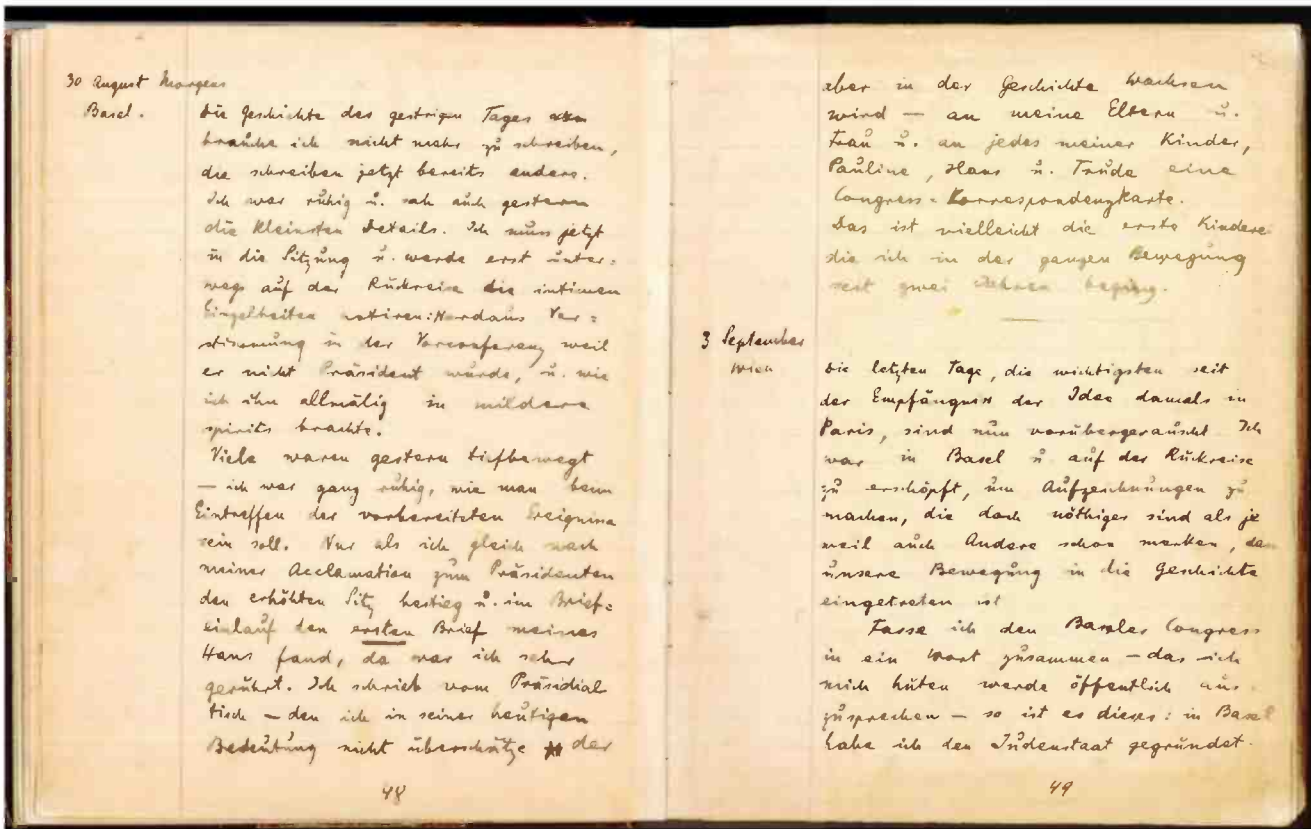 30 August Morgens
Basel.
Die Geschichte des gestrigen Tages
brauche ich nicht mehr zu schreiben,
die schreiben jetzt bereits andere.
Ich war ruhig u. sah auch gestern
die kleinsten Details. Ich muss jetzt
in die Sitzung u. werde erst unter=
wegs auf der Rückreise die intimen
Einzelheiten notiren: Nordaus Ver=
stimmung in der Vorconferenz weil
er nicht Präsident wurde, u. wie
ich ihn allmälig in mildere
spirits brachte.
Viele waren gestern tiefbewegt
— ich war ganz ruhig, wie man beim
Eintreffen der vorbereiteten Ereignisse
sein soll. Nur als ich gleich nach
meiner Acclamation zum Präsidenten
den erhöhten Sitz bestieg u. im Brief=
einlauf den ersten Brief meines
Hans fand, da war ich sehr
gerührt. Ich schrieb vom Präsidial
tisch — den ich in seiner heutigen
Bedeutung nicht überschätze der
48
aber in der Geschichte wachsen
wird — an meine Eltern u.
Frau u. an jedes meiner Kinder,
Pauline, Hans u. Trude eine
Congress=Korrespondenzkarte.
Das ist vielleicht die erste Kinderei
die ich in der ganzen Bewegung
seit zwei Jahren beging.
3 September
Wien
Die letzten Tage, die wichtigsten seit
der Empfängniss der Idee damals in
Paris, sind nun vorübergerauscht. Ich
war in Basel u. auf der Rückreise
zu erschöpft, um Aufzeichnungen zu
machen, die doch nöthiger sind als je
weil auch Andere schon merken, dass
unsere Bewegung in die Geschichte
eingetreten ist
Fasse ich den Baseler Congress
in ein Wort zusammen — das ich
mich hüten werde öffentlich aus=
zusprechen — so ist es dieses: in Basel
habe ich den Judenstaat gegründet.
49